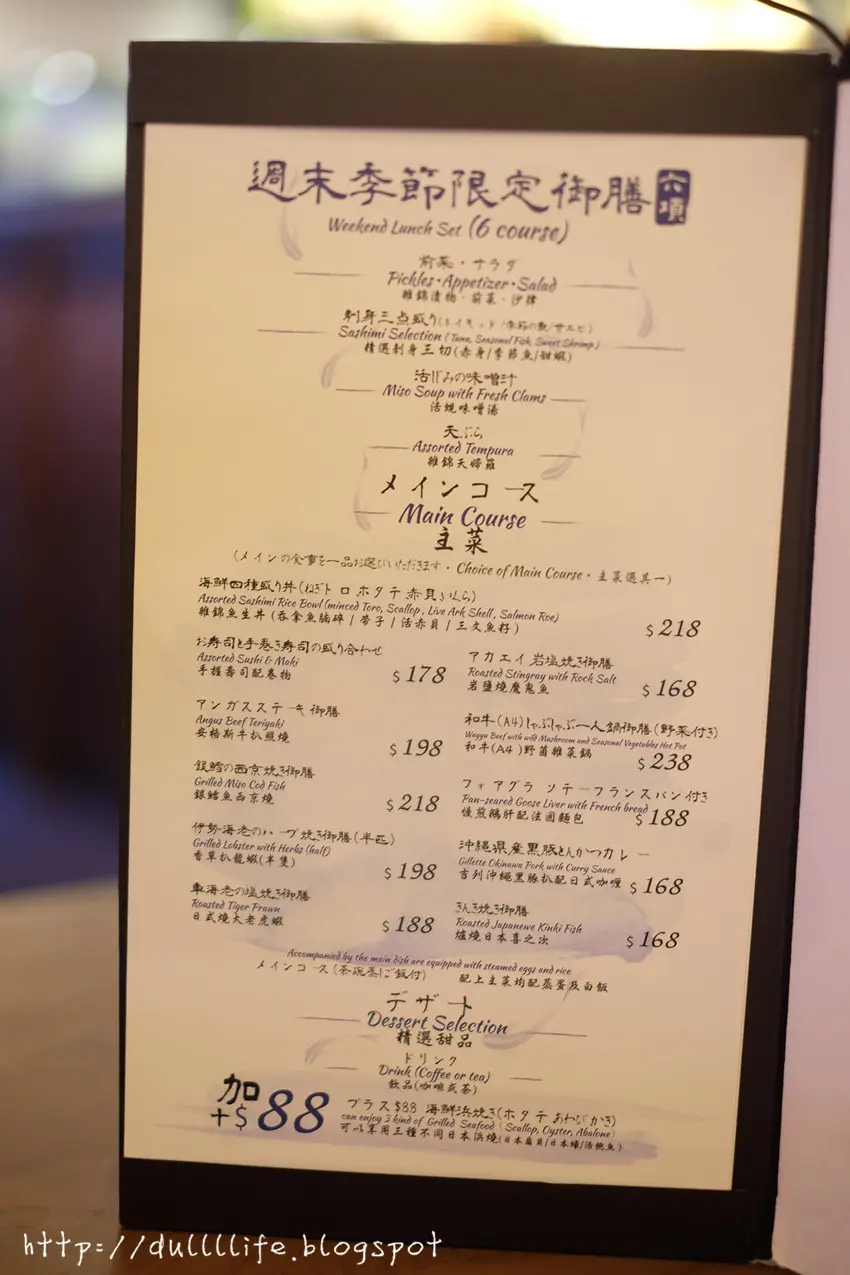 週末季節限定御膳 六項
Weekend Lunch Set (6 course)
前菜・サラダ
Pickles・Appetizer・Salad
雜錦漬物・前菜・沙律
刺身三点盛り
Sashimi Selection (Tuna, Seasonal Fish, Sweet Shrimp)
精選刺身三切(赤身/季節魚/甜蝦)
活しじみの味噌汁
Miso Soup with Fresh Clams
活蜆味噌湯
天ぷら
Assorted Tempura
雜錦天婦羅
メインコース
Main Course
主菜
(メインの食事を一品お選びいただきます・Choice of Main Course・主菜選其一)
海鮮四種盛り丼(ねぎトロ ホタテ 赤貝 いくら)
Assorted Sashimi Rice Bowl (minced Toro, Scallop, Live Ark Shell, Salmon Roe)
雜錦魚生丼(吞拿魚腩碎/帶子/活赤貝/三文魚籽)
$218
お寿司と手巻き寿司の盛り合わせ
Assorted Sushi & Maki
手握壽司配卷物
$178
アカエイ岩塩焼き御膳
Roasted Stingray with Rock Salt
岩鹽燒魔鬼魚
$168
アンガスステーキ御膳
Angus Beef Teriyaki
安格斯牛扒照燒
$198
和牛(A4)しゃぶしゃぶ一人鍋御膳(野菜付き)
Wagyu Beef with wild Mushroom and Seasonal Vegetables Hot Pot
和牛(A4)野菌雜菜鍋
$238
銀鱈の西京焼き御膳
Grilled Miso Cod Fish
銀鱈魚西京燒
$218
フォアグラ ソテーフランスパン付き
Pan-seared Goose Liver with French bread
慢煎鵝肝配法國麵包
$188
伊勢海老のハーブ焼き御膳(半匹)
Grilled Lobster with Herbs (half)
香草扒龍蝦(半隻)
$198
沖縄県産黒豚とんかつカレー
Gillette Okinawa Pork with Curry Sauce
吉列沖繩黑豚扒配日式咖喱
$168
車海老の塩焼き御膳
Roasted Tiger Prawn
日式燒大老虎蝦
$188
きんき焼き御膳
Roasted Japanewe Kinki Fish
爐燒日本喜之次
$168
Accompanied by the main dish are equipped with steamed eggs and rice
メインコース(茶碗蒸しご飯付) 配上主菜均配蒸蛋及白飯
デザート
Dessert Selection
精選甜品
ドリンク
Drink (Coffee or tea)
飲品(咖啡或茶)
加
+$88
プラス$88 海鮮浜焼き(ホタテ あわび かき)
can enjoy 3 kind of Grilled Seafood (Scallop, Oyster, Abalone)
可以享用三種不同日本浜燒(日本扇貝/日本蠔/活鮑魚)
http://dullllife.blogspot